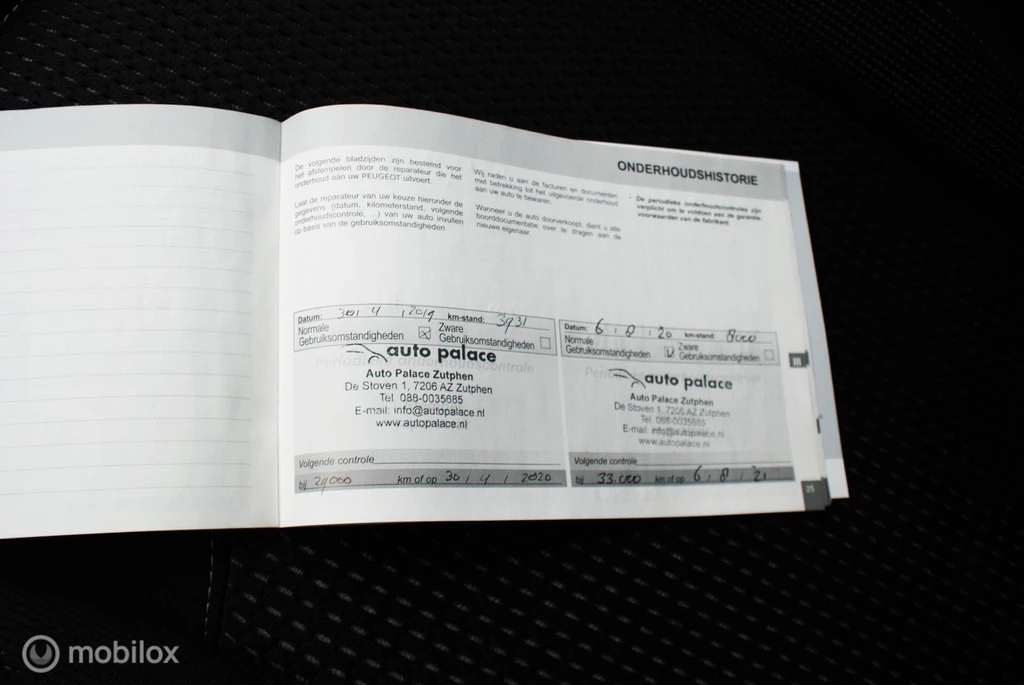 ONDERHOUDSHISTORIE
De volgende bladzijden zijn bestemd voor
het afstempelen door de reparateur die het
onderhoud aan uw PEUGEOT uitvoert.
Laat de reparateur van uw keuze hieronder de
gegevens (datum, kilometerstand, volgende
onderhoudscontrole, ...) van uw auto invullen
op basis van de gebruiksomstandigheden.
Wij raden u aan de facturen en documenten
met betrekking tot het uitgevoerde onderhoud
aan uw auto te bewaren.
Wanneer u de auto doorverkoopt, dient u alle
boorddocumentatie over te dragen aan de
nieuwe eigenaar.
- De periodieke onderhoudscontroles zijn
verplicht om te voldoen aan de garantie-
voorwaarden van de fabrikant.
Datum: 30 / 4 / 2019 km-stand: 3931
Normale
Gebruiksomstandigheden
Zware
Gebruiksomstandigheden
auto palace
Auto Palace Zutphen
De Stoven 1, 7206 AZ Zutphen
Tel. 088-0035685
E-mail: info@autopalace.nl
www.autopalace.nl
Volgende controle
bij 29000 km of op 30 / 4 / 2020
Datum: 6 / 8 / 20 km-stand: 8000
Normale
Gebruiksomstandigheden
Zware
Gebruiksomstandigheden
auto palace
Auto Palace Zutphen
De Stoven 1, 7206 AZ Zutphen
Tel. 088-0035685
E-mail: info@autopalace.nl
www.autopalace.nl
Volgende controle
bij 33.000 km of op 6 / 8 / 21
III
25
mobilox